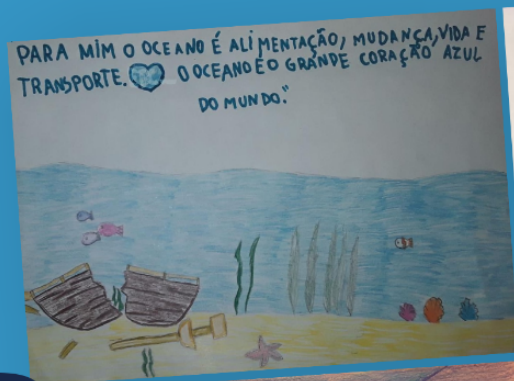 PARA MIM O OCEANO É ALIMENTAÇÃO, MUDANÇA, VIDA E
TRANSPORTE. O OCEANO É O GRANDE CORAÇÃO AZUL
DO MUNDO."